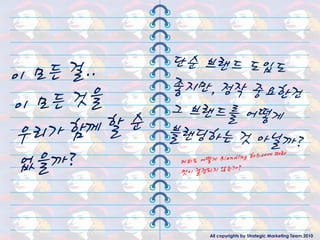 이 모든 걸..
이 모든 것을
우리가 함께 할 순
없을까?
단순 브랜드 도입도
좋지만, 정작 중요한건
그 브랜드를 어떻게
브랜딩하는 것 아닐까?
어떻게 Branding
않는가?
All copyrights by Strategic Marketing Team.2010